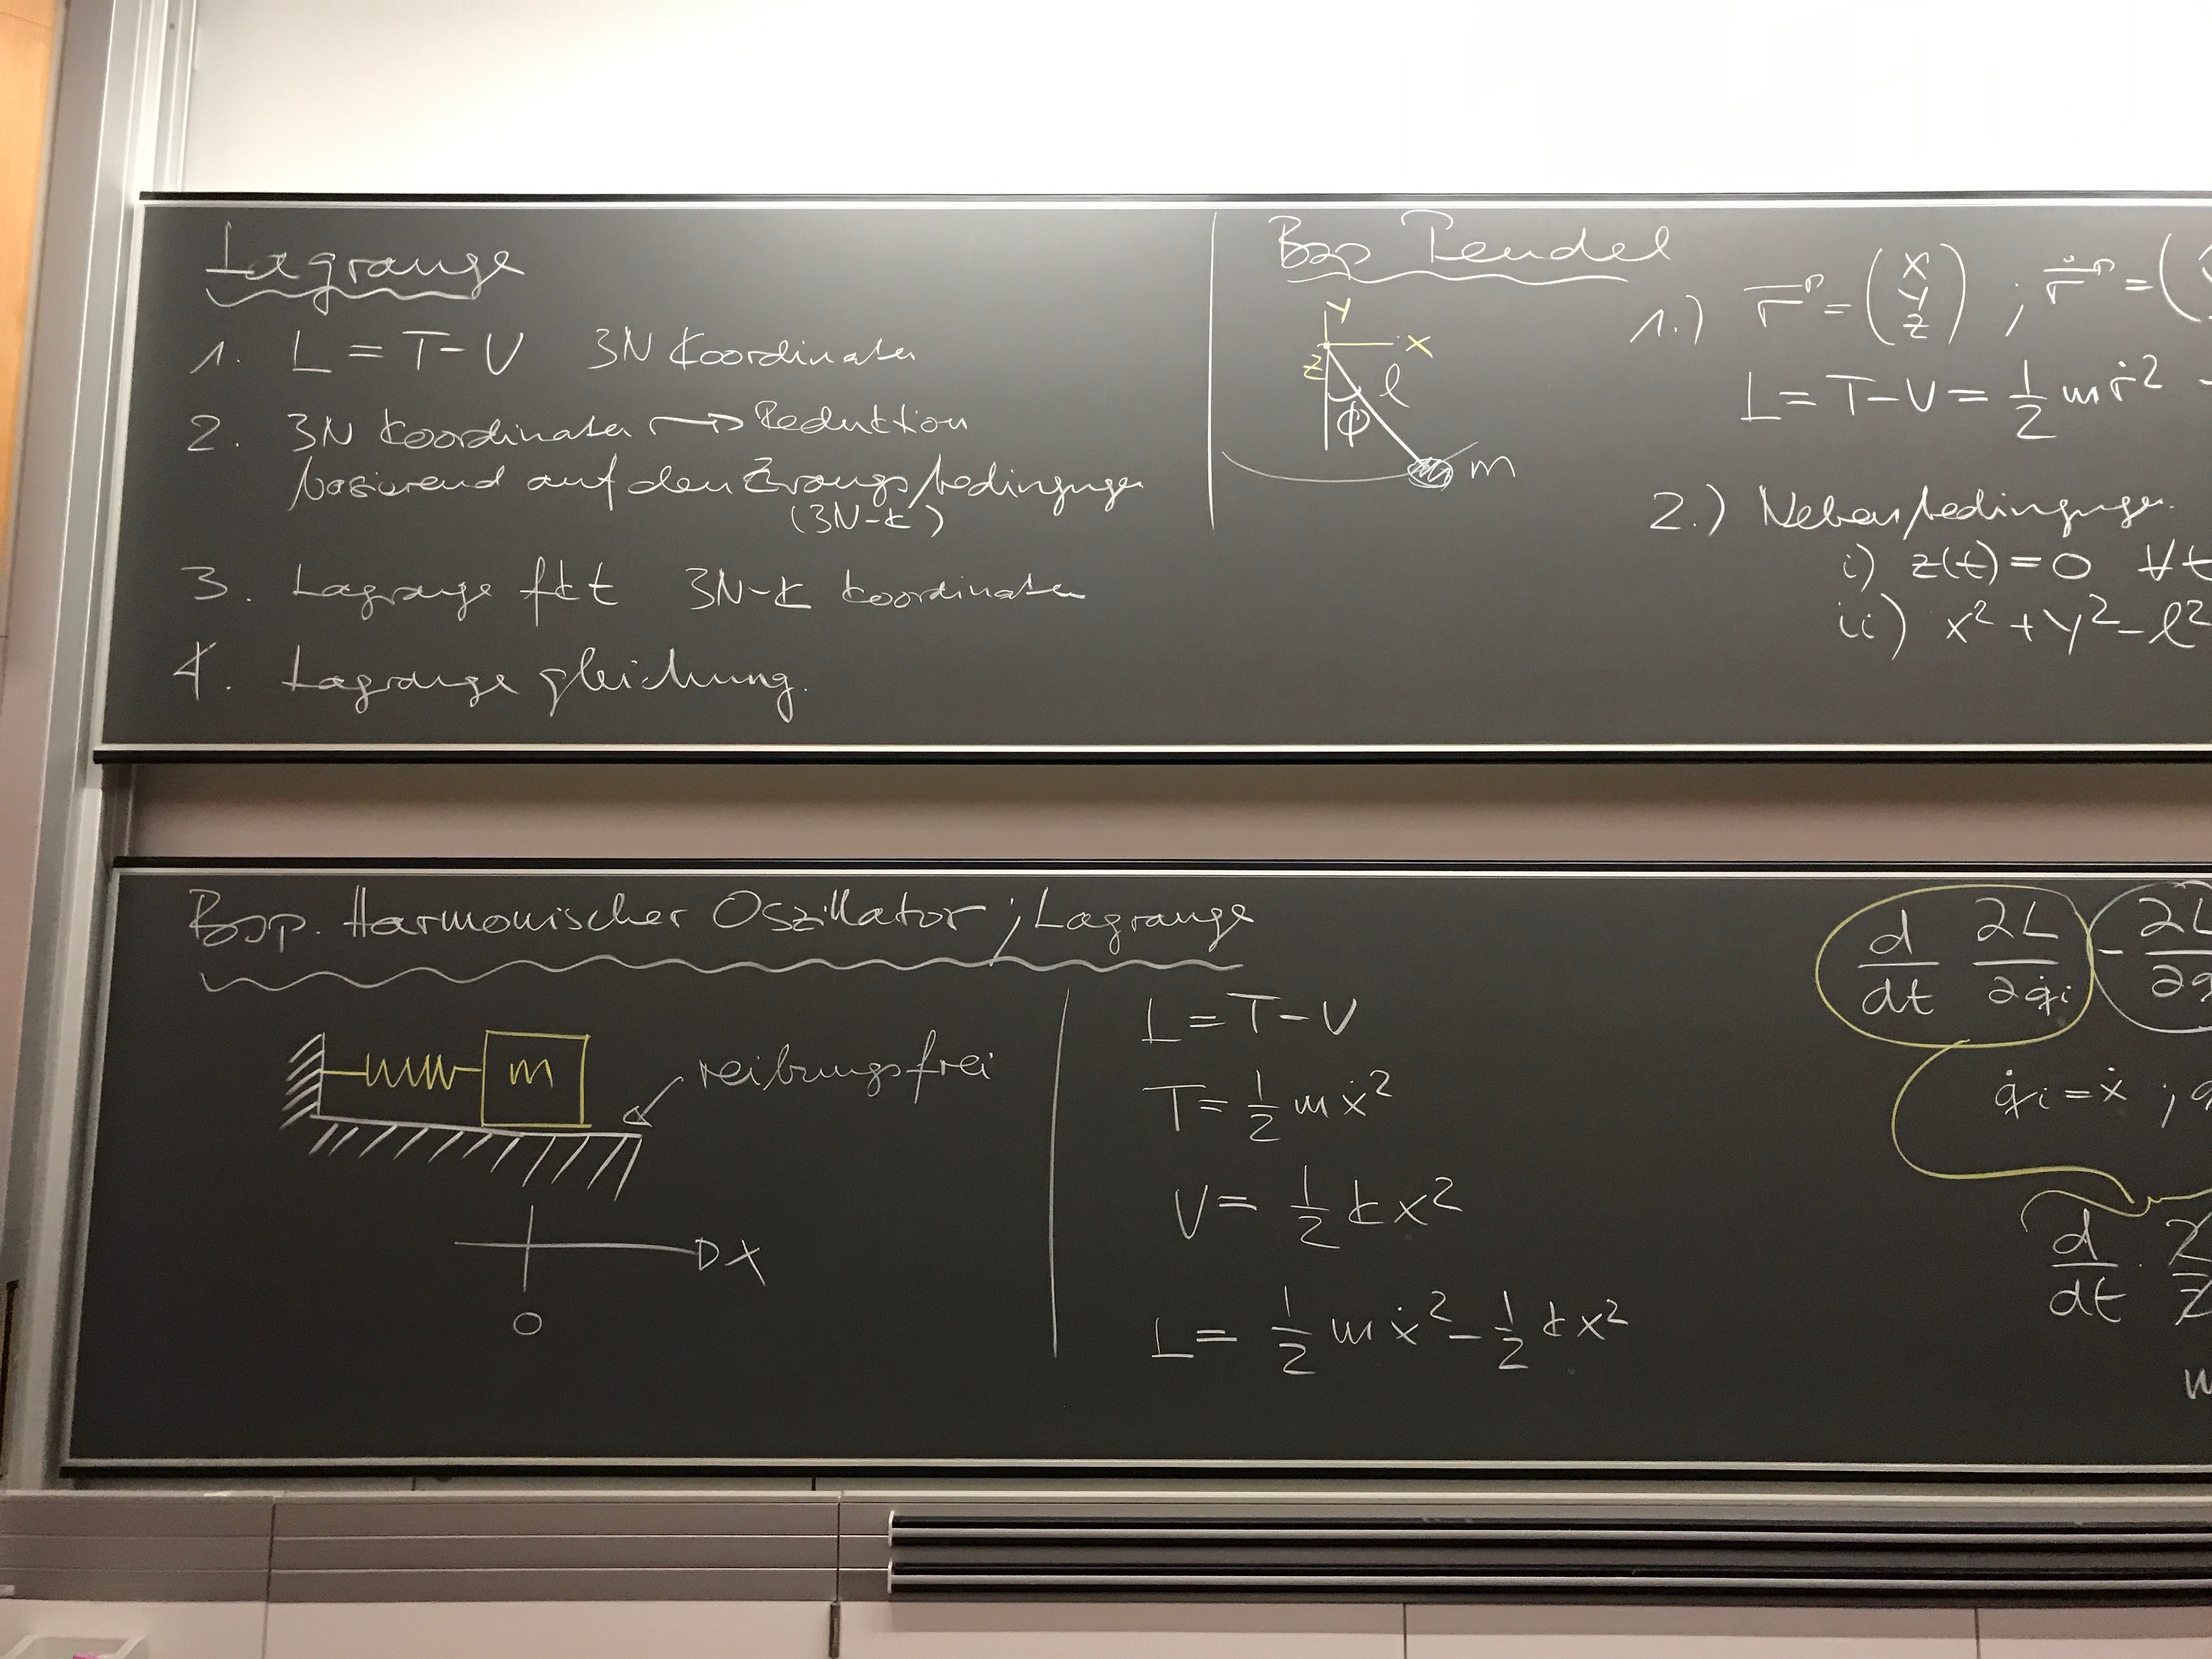 Lagrange
1. L = T - V 3N Koordinaten
2. 3N Koordinaten → Reduktion
basierend auf den Zwangsbedingungen
(3N-k)
3. Lagrange fkt 3N-k Koordinaten
4. Lagrange gleichung.
Bsp Pendel
y
x
z
l
ϕ
m
1.) r⃗ = (x y z) ; ṙ⃗ = (
L = T - V = 1/2 m ṙ² -
2.) Nebenbedingungen.
i) z(t) = 0 ∀t
ii) x² + y² - l²
Bsp. Harmonischer Oszillator ; Lagrange
m
reibungsfrei
x
0
L = T - V
T = 1/2 m ẋ²
V = 1/2 k x²
L = 1/2 m ẋ² - 1/2 k x²
d/dt ∂L/∂q̇i - ∂L/∂q
q̇i = ẋ ; q
d/dt · 2/2
m